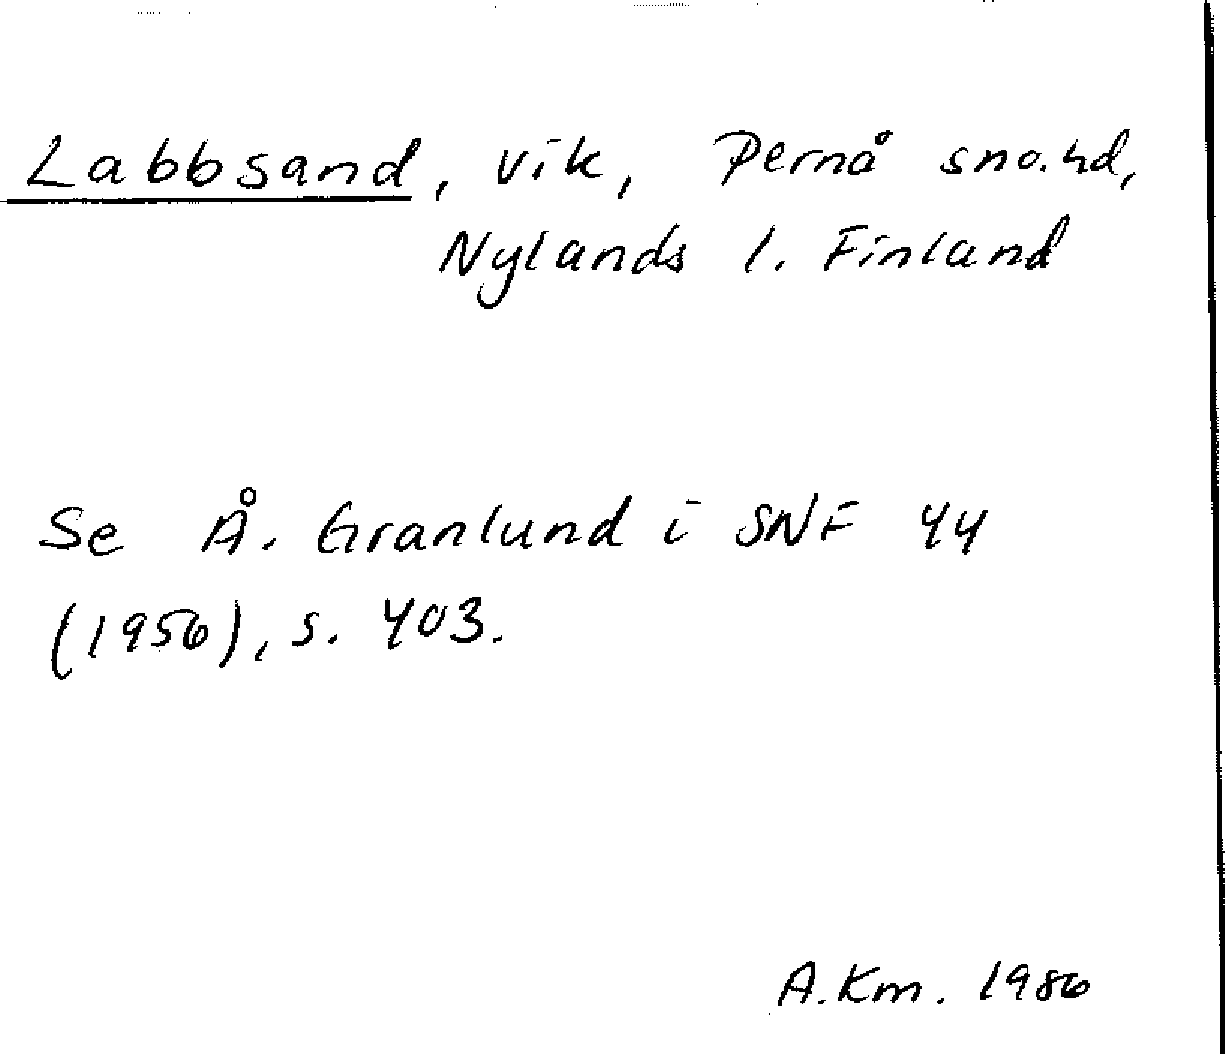 Labbsand, vik, Pernå sn o. hd,
Nylands l. Finland
Se Å. Granlund i SNF 44
(1956), s. 403.
A.Km. 1986